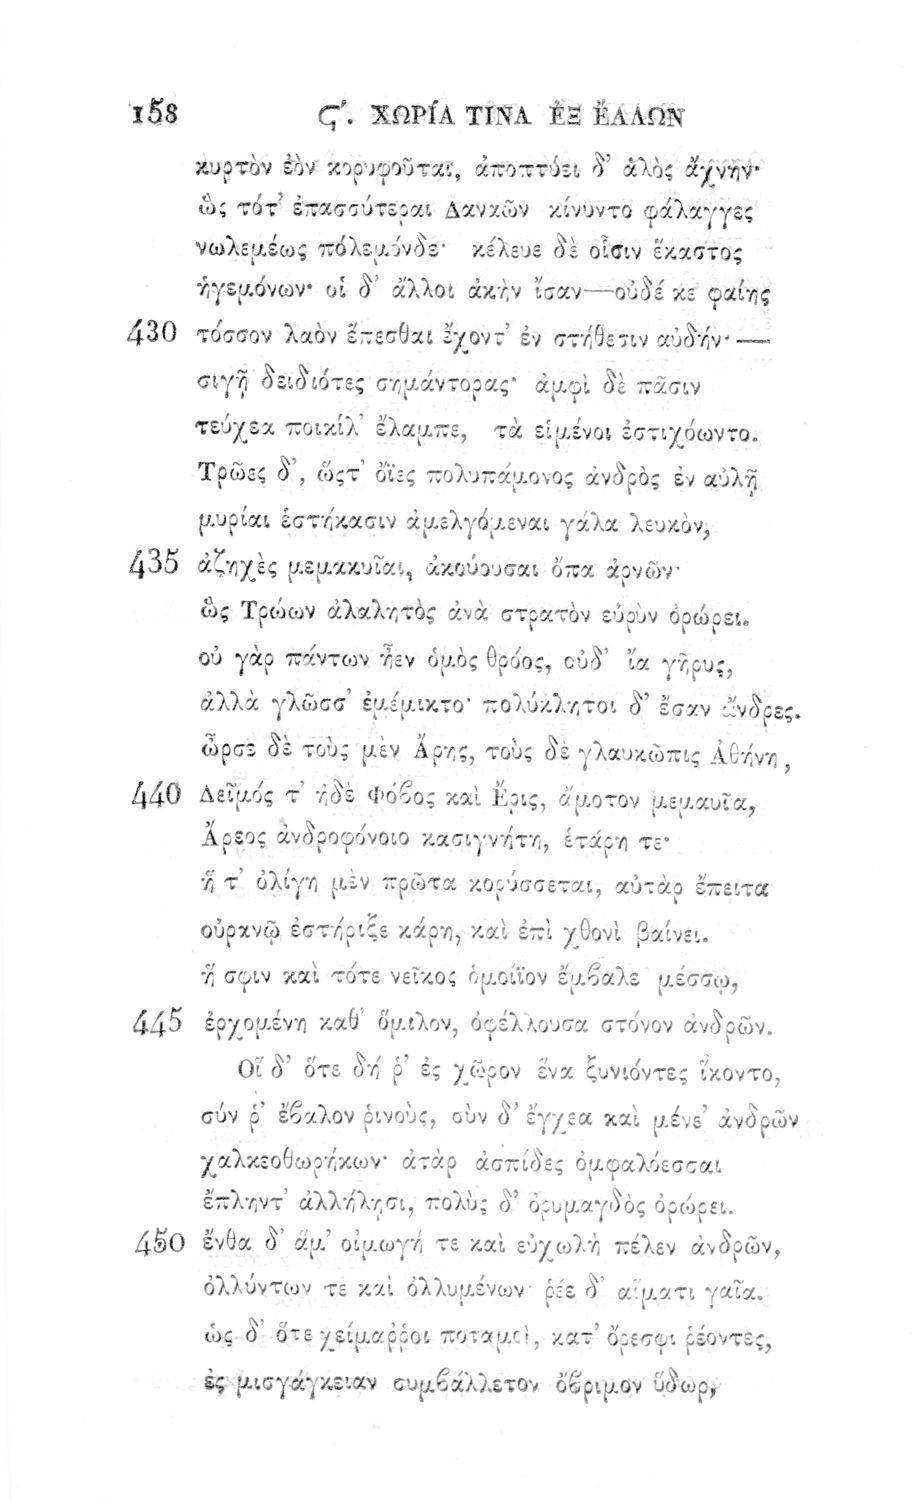 158 Ϛ΄. ΧΩΡΊΑ ΤΙΝΑ ἘΞ ἜΛΛΩΝ
κυρτὸν ἐὸν κορυφοῦται, ἀποπτύει δ’ ἁλὸς ἄχνην·
ὣς τότ’ ἐπασσύτεραι Δαναῶν κίνυντο φάλαγγες
νωλεμέως πόλεμόνδε· κέλευε δὲ οἷσιν ἕκαστος
ἡγεμόνων· οἱ δ’ ἄλλοι ἀκὴν ἴσαν—οὐδέ κε φαίης
430 τόσσον λαὸν ἕπεσθαι ἔχοντ’ ἐν στήθεσιν αὐδήν·—
σιγῇ δειδιότες σημάντορας· ἀμφὶ δὲ πᾶσιν
τεύχεα ποικίλ’ ἔλαμπε, τὰ εἱμένοι ἐστιχόωντο.
Τρῶες δ’, ὥςτ’ ὄϊες πολυπάμονος ἀνδρὸς ἐν αὐλῇ
μυρίαι ἑστήκασιν ἀμελγόμεναι γάλα λευκὸν,
435 ἀζηχὲς μεμακυῖαι, ἀκούουσαι ὄπα ἀρνῶν·
ὣς Τρώων ἀλαλητὸς ἀνὰ στρατὸν εὐρὺν ὀρώρει.
οὐ γὰρ πάντων ἦεν ὁμὸς θρόος, οὐδ’ ἴα γῆρυς,
ἀλλὰ γλῶσσ’ ἐμέμικτο· πολύκλητοι δ’ ἔσαν ἄνδρες.
ὦρσε δὲ τοὺς μὲν Ἄρης, τοὺς δὲ γλαυκῶπις Ἀθήνη,
440 Δεῖμός τ’ ἠδὲ Φόϐος καὶ Ἔρις, ἄμοτον μεμαυῖα,
Ἄρεος ἀνδροφόνοιο κασιγνήτη, ἑτάρη τε·
ἥ τ’ ὀλίγη μὲν πρῶτα κορύσσεται, αὐτὰρ ἔπειτα
οὐρανῷ ἐστήριξε κάρη, καὶ ἐπὶ χθονὶ βαίνει.
ἥ σφιν καὶ τότε νεῖκος ὁμοίϊον ἔμϐαλε μέσσῳ,
445 ἐρχομένη καθ’ ὅμιλον, ὀφέλλουσα στόνον ἀνδρῶν.
Οἵ δ’ ὅτε δή ῥ’ ἐς χῶρον ἕνα ξυνιόντες ἵκοντο,
σύν ῥ’ ἔϐαλον ῥινοὺς, σὺν δ’ ἔγχεα καὶ μένε’ ἀνδρῶν
χαλκεοθωρήκων· ἀτὰρ ἀσπίδες ὀμφαλόεσσαι
ἔπληντ’ ἀλλήλῃσι, πολὺς δ’ ὀρυμαγδὸς ὀρώρει.
450 ἔνθα δ’ ἅμ’ οἰμωγή τε καὶ εὐχωλὴ πέλεν ἀνδρῶν,
ὀλλύντων τε καὶ ὀλλυμένων· ῥέε δ’ αἵματι γαῖα.
ὡς δ’ ὅτε χείμαῤῥοι ποταμοὶ, κατ’ ὄρεσφι ῥέοντες,
ἐς μισγάγκειαν συμϐάλλετον ὄϐριμον ὕδωρ,